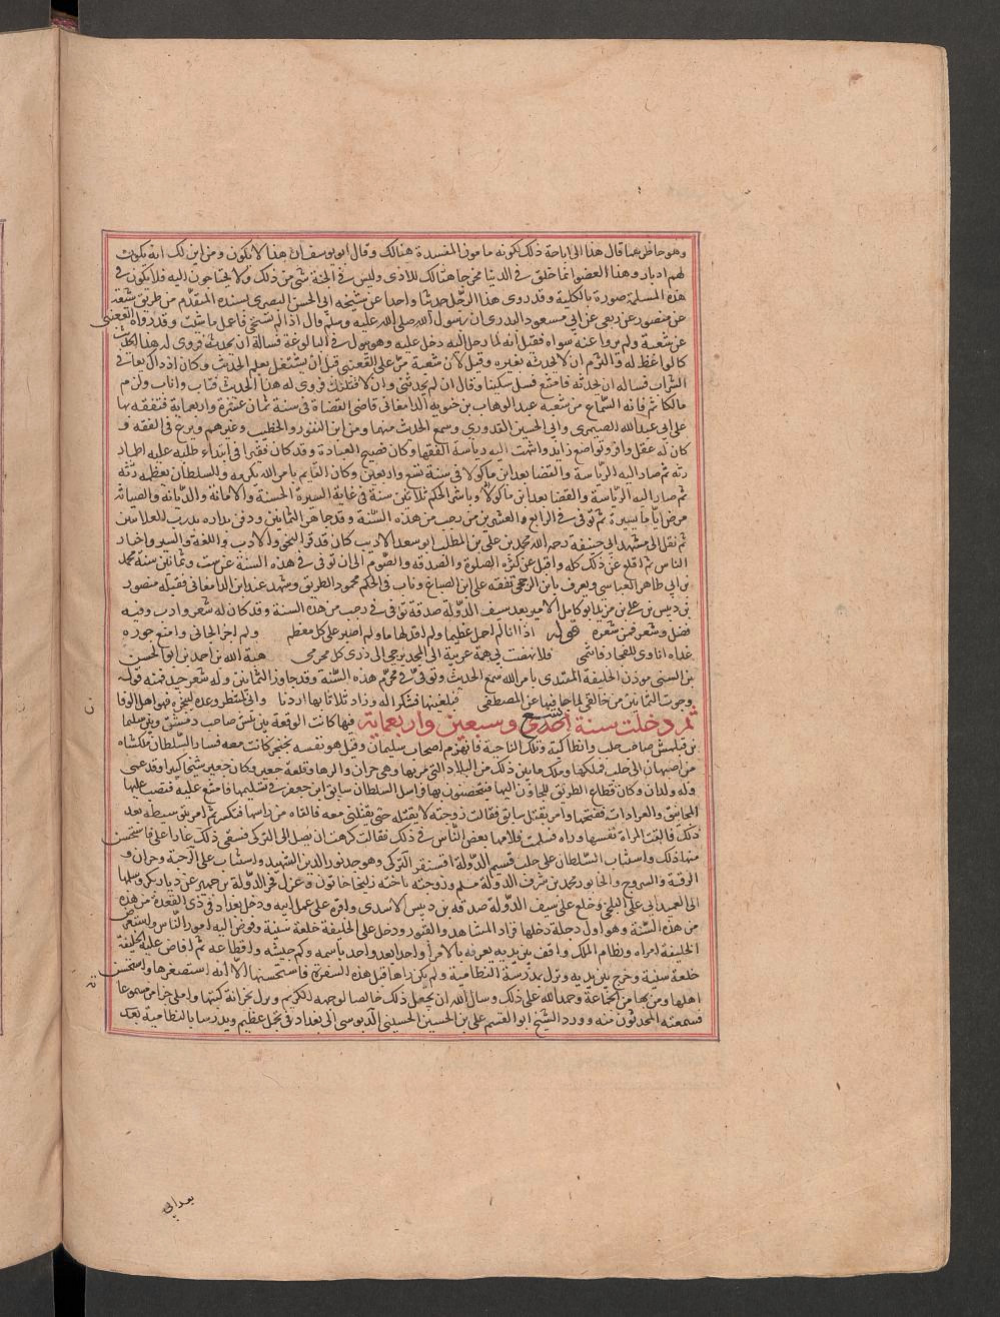 وهو حافظ عما قال هذا الى اباحة ذلك لكونه مامون المفسدة هنالك وقال ابو يوسف ان هذا لا يكون ومن اين لك انه يكون
لهم ادبار وهذا العضو انما خلق في الدنيا مخرجا هنالك للاذى وليس في الجنة شي من ذلك ولا يحتاجون اليه فلا يكون في
هذه المسلة صورة بالكلية وقد روى هذا الرجل حديثا واحدا عن شيخه ابي الحسن البصرى بسنده المتقدم من طريق شعبة
عن منصور عن ربعي عن ابي مسعود البدرى ان رسول الله صلى الله عليه وسلم قال اذا لم تستحي فاعل ما شئت وقد رواه القعنبى
عن شعبة ولم يرو عنه سواه فقيل انه لما رحل اليه دخل عليه وهو يبول في البالوعة فساله ان يحدثه فروى له هذا الحديث
كالواعظ له والتزم ان لا يحدثه بغيره وقيل لان شعبة مر على القعنبى قبل ان يشتغل بعلم الحديث وكان اذ ذاك يعانى
الشراب فساله ان يحدثه فامتنع فسل سكينا وقال ان لم تحدثنى والا قتلتك فروى له هذا الحديث فتاب واناب ولزم
مالكا ثم فاته السماع من شعبة عبد الوهاب بن الدامغاني قاضى القضاة في سنة ثمان عشرة واربعماية فتفقه بها
على ابى عبد الله الصيمرى وابى الحسين القدورى وسمع الحديث منهما ومن ابن النقور والخطيب وغيرهم وبرع في الفقه و
كان له عقل وافر وتواضع زايد وانتهت اليه رياسة الفقها وكان فصيح العبادة وقد كان فقيرا في ابتداء طلبه عليه اطمار
رثه ثم صار اليه الرياسة والقضا بعد ابن ماكولا في سنة تسع واربعين وكان القايم بامر الله يكرمه والسلطان يعظمه
ثم صار اليه الرياسة والقضا بعد ابن ماكولا وباشر الحكم ثلاثين سنة في غاية السيرة الحسنة والامانة والديانة والصيانة
مرض اياما يسيرة ثم توفى في الرابع والعشرين من رجب من هذه السنة وقد جاهز الثمانين ودفن بداره بدرب العلابين
ثم نقل الى مشهد ابى حنيفة رحمه الله محمد بن على بن المطلب ابو سعد الاديب كان قد قرا النحو والادب واللغة والسير واخبار
الناس ثم اقلع عن ذلك كله واقبل على كثرة الصلوة والصدقة والصوم الى ان توفى في هذه السنة عن ست وثمانين سنة محمد
بن ابى طاهر العباسى ويعرف بابن الرحجي تفقه على ابن الصباغ وناب في الحكم محمود الطريق وشهد عند ابن الدامغانى فقبله منصور
بن دبيس بن على بن مزيد ابو كامل الامير بعد سيف الدولة صدقة توفى في رجب من هذه السنة وقد كان له شعر وادب وفيه
فضل وشعر فمن شعره قوله اذا انا لم احمل عظيما ولم اقد لهاما ولم اصبر على كل معظم ولم اجر الجانى وامنع جوره
غداه انادى للفخار فانتمى فلا نهضت لى همة عربية الى المجد ترجى الى ذرى كل محرمى هبة الله بن احمد بن ابو الحسن
بن السيبى مودب الخليفة المقتدى بامر الله سمع الحديث وتوفى في محرم هذه السنة وقد جاوز الثمانين وله شعر جيد فمنه قوله
رجوت الثمانين من خالقى لما جا فيها عن المصطفى فبلغنيها فشكرا له وزاد ثلاثا بها اردفا وانى لمنتظر وعده لينجزه فهو اهل الوفا
ثم دخلت سنة تسع وسبعين واربعماية فيها كانت الوقعة بين تتش صاحب دمشق وبين سليمان
بن قتلمش صاحب حلب وانطاكية وتلك الناحية فانهزم اصحاب سليمان وقتل هو نفسه بخنجر كانت معه فسار السلطان ملكشاه
من اصبهان الى حلب فملكها وملك ما بين ذلك من البلاد التى مر بها وهى حران والرها وقلعة جعبر وكان جعبر شيخا كبيرا وقد عمى
وله ولدان وكان قطاع الطريق يلجاون اليها فيتحصنون بها فراسل السلطان سابق ابن جعبر في تسليمها فامتنع عليه فنصب عليها
المجانيق والعرادات ففتحها وامر بقتل سابق فقالت زوجته لا تقتله حتى تقتلنى معه فالقاه من راسها فتكسر ثم امر بتوسيطه بعد
ذلك فالقت المراة نفسها وراه فسلمت فلامها بعض الناس في ذلك فقالت كرهت ان يصل الى التركى فيبقى ذلك عارا على فاستحسن
منها ذلك واستناب السلطان على حلب قسيم الدولة اقسنقر التركى وهو جد نور الدين الشهيد واستناب على الرحبة وحران و
الرقة والسروج والخابور محمد بن شرف الدولة مسلم وزوجته باخته زليخا خاتون وعزل فخر الدولة بن جهير عن ديار بكر وسلمها
الى العميد ابى على البلخى وخلع على سيف الدولة صدقة بن دبيس الاسدى واقره على عمل ابيه ودخل بغداد في ذى القعدة من هذه
من هذه السنة وهو اول دخلة دخلها فزار المشاهد والقبور ودخل على الخليفة خلعة سنية وفوض اليه امور الناس واستعرض
الخليفة امراه ونظام الملك واقف بين يديه يعرفه بالامرا واحدا بعد واحد باسمه وكم جيشه واقطاعه ثم افاض عليه الخليفة
خلعة سنية وخرج من بين يديه ونزل بمدرسة النظامية ولم يكن راها قبل هذه السفرة فاستحسنها الا انه استصغرها واستحسن
اهلها ومن بها من الجماعة وحمد الله على ذلك وسال الله ان يجعل ذلك خالصا لوجهه الكريم ونزل بخزانة كتبها واملى جزا من مسموعاته
فسمعه المحدثون منه وورد الشيخ ابو القسم على بن الحسين الحسينى الدبوسى الى بغداد في تجمل عظيم ويدرسا بالنظامية بعد
بعد ابى